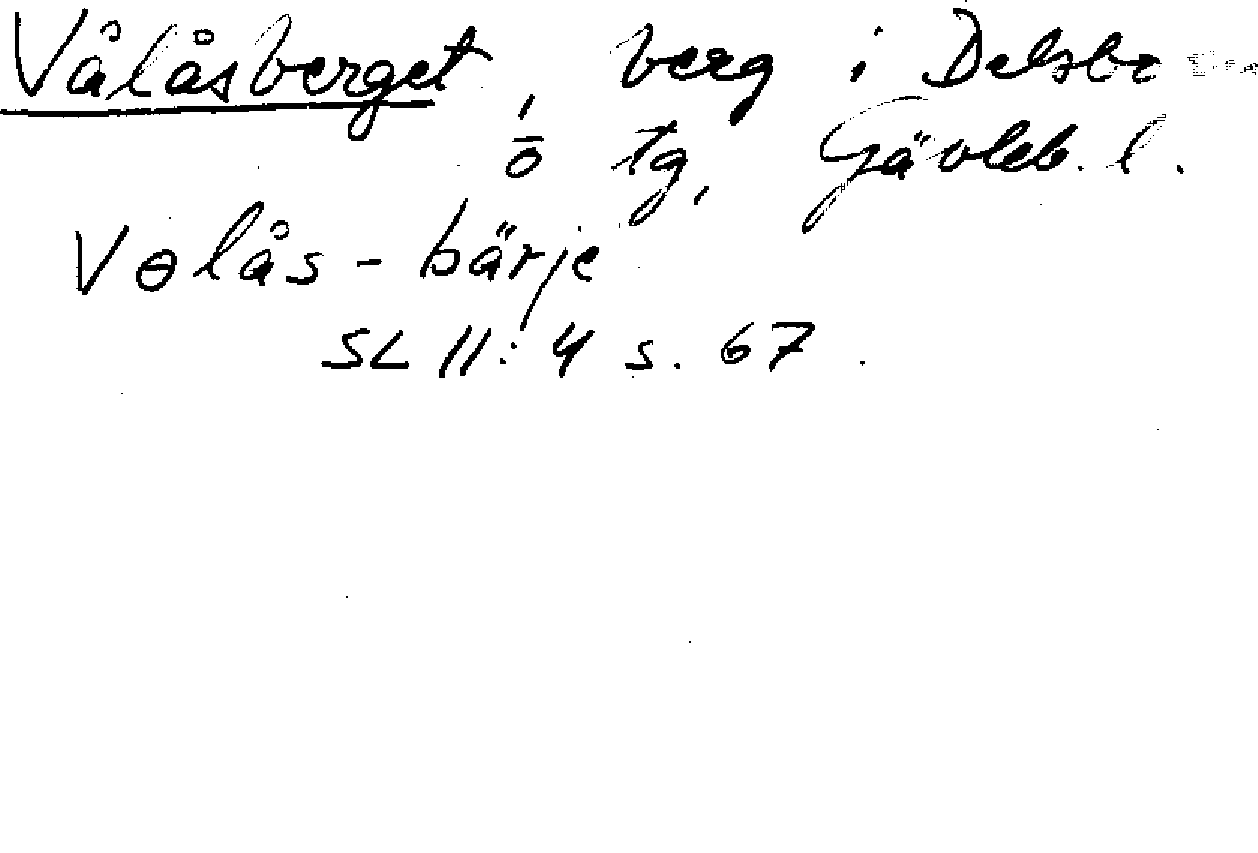 Vålåsberget, berg i Delsbo
1/0 tg, Gävleb. l.
Vɵlås-bärje
SL 11:4 s. 67.